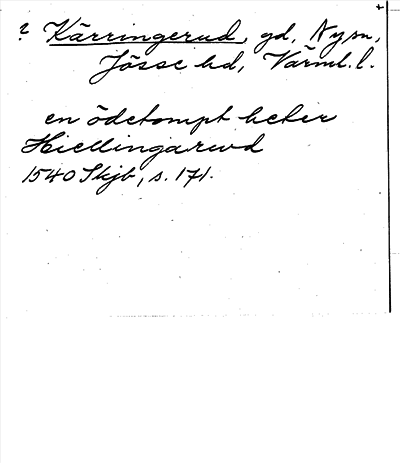 ? Kärringerud, gd, Nysn,
Jösse hd, Värml. l.
en ödetompt heter
Hiellingarwd
1540 Skjb, s. 171.